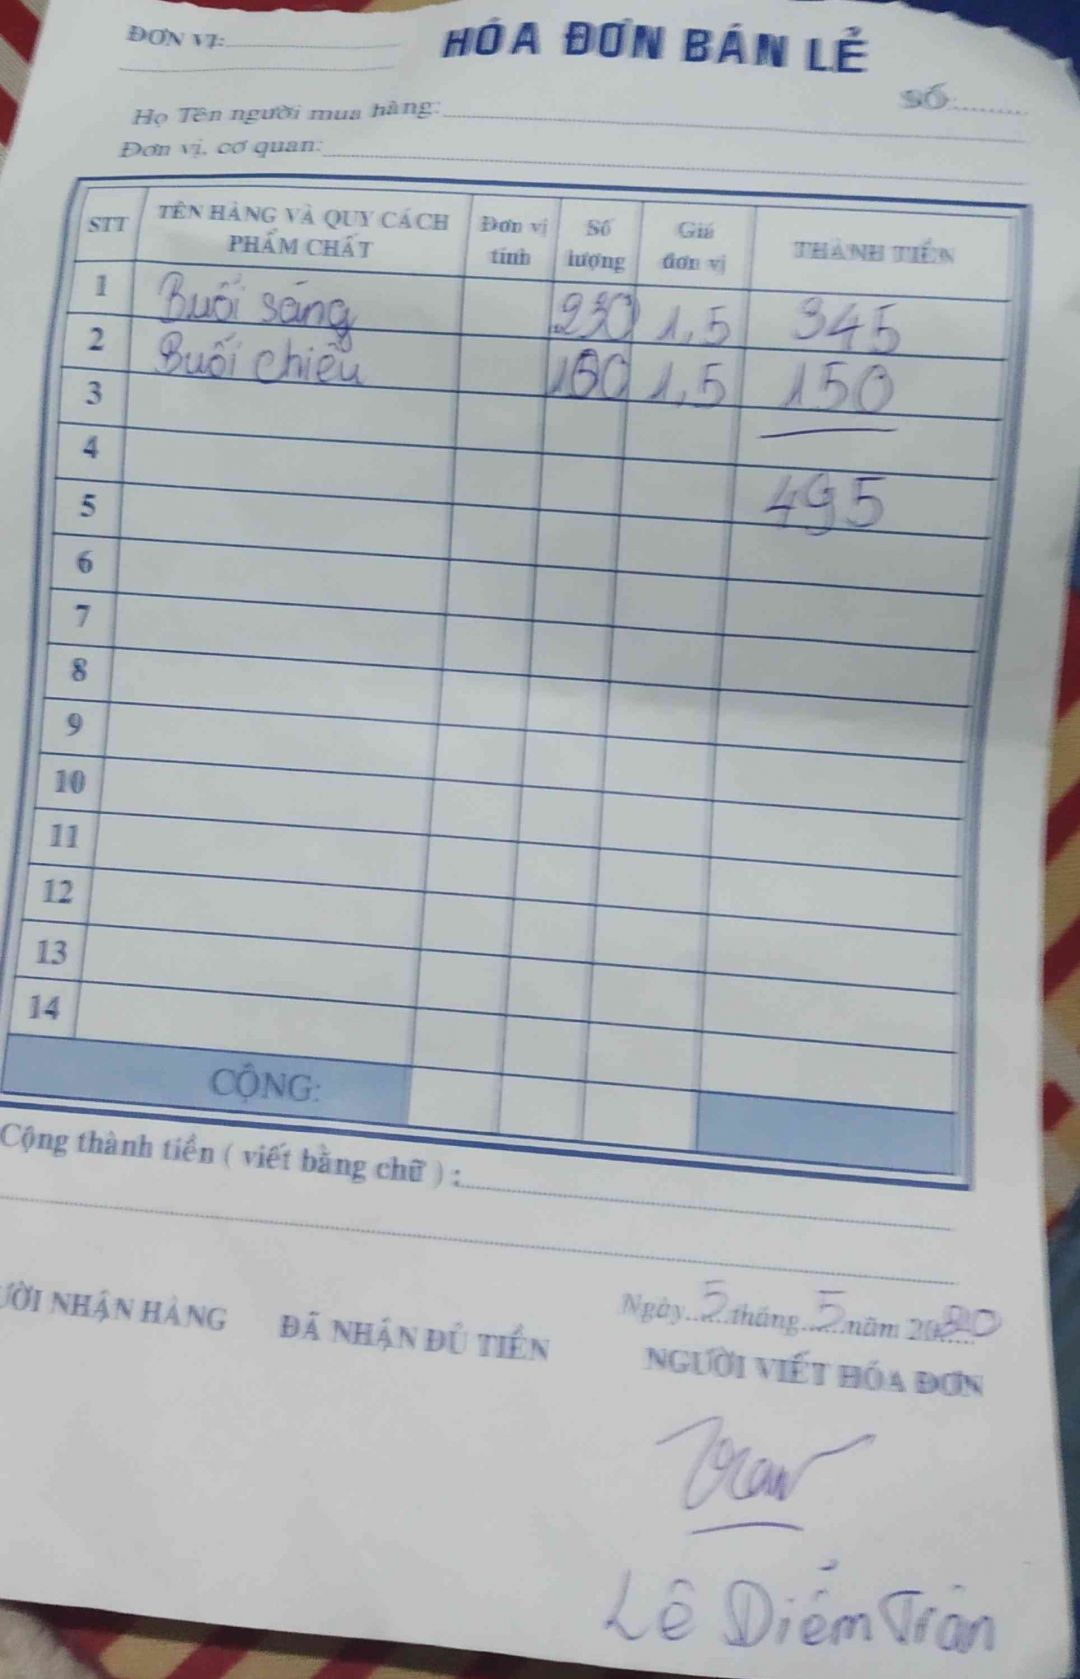 ĐƠN VỊ:
HÓA ĐƠN BÁN LẺ
SỐ
Họ Tên người mua hàng:
Đơn vị, cơ quan:
STT TÊN HÀNG VÀ QUY CÁCH PHẨM CHẤT Đơn vị tính Số lượng Giá đơn vị THÀNH TIỀN
1 Buổi sáng 230 1,5 345
2 Buổi chiều 100 1,5 150
3
4
5 495
6
7
8
9
10
11
12
13
14
CỘNG:
Cộng thành tiền ( viết bằng chữ ) :
ƯỜI NHẬN HÀNG ĐÃ NHẬN ĐỦ TIỀN
Ngày 5 tháng 5 năm 20
NGƯỜI VIẾT HÓA ĐƠN
Lê Diễm Trân